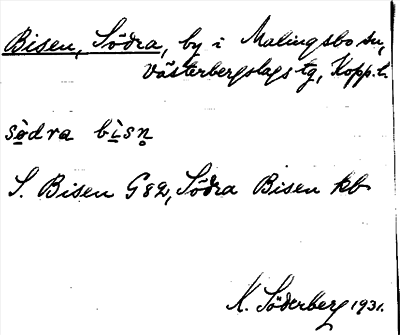 Bisen, Södra, by i Malingsbo sn,
Västerbergslags tg, Kopp. l.
sö̀dra bı̀sn̥
S. Bisen G82, Södra Bisen kb
K. Söderberg 1931.